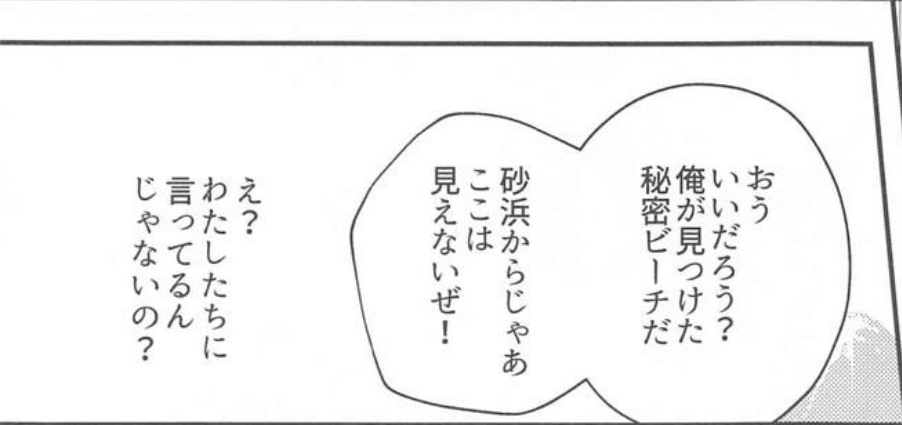 おう
いいだろう?
俺が見つけた
秘密ビーチだ
砂浜からじゃあ
ここは
見えないぜ!
え?
わたしたちに
言ってるん
じゃないの?